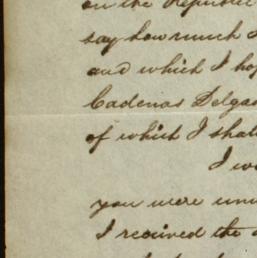 on the Republic
say how much I
and which I hop
Cadenas Delgad
of which I shal
I wo
you were un
I received the